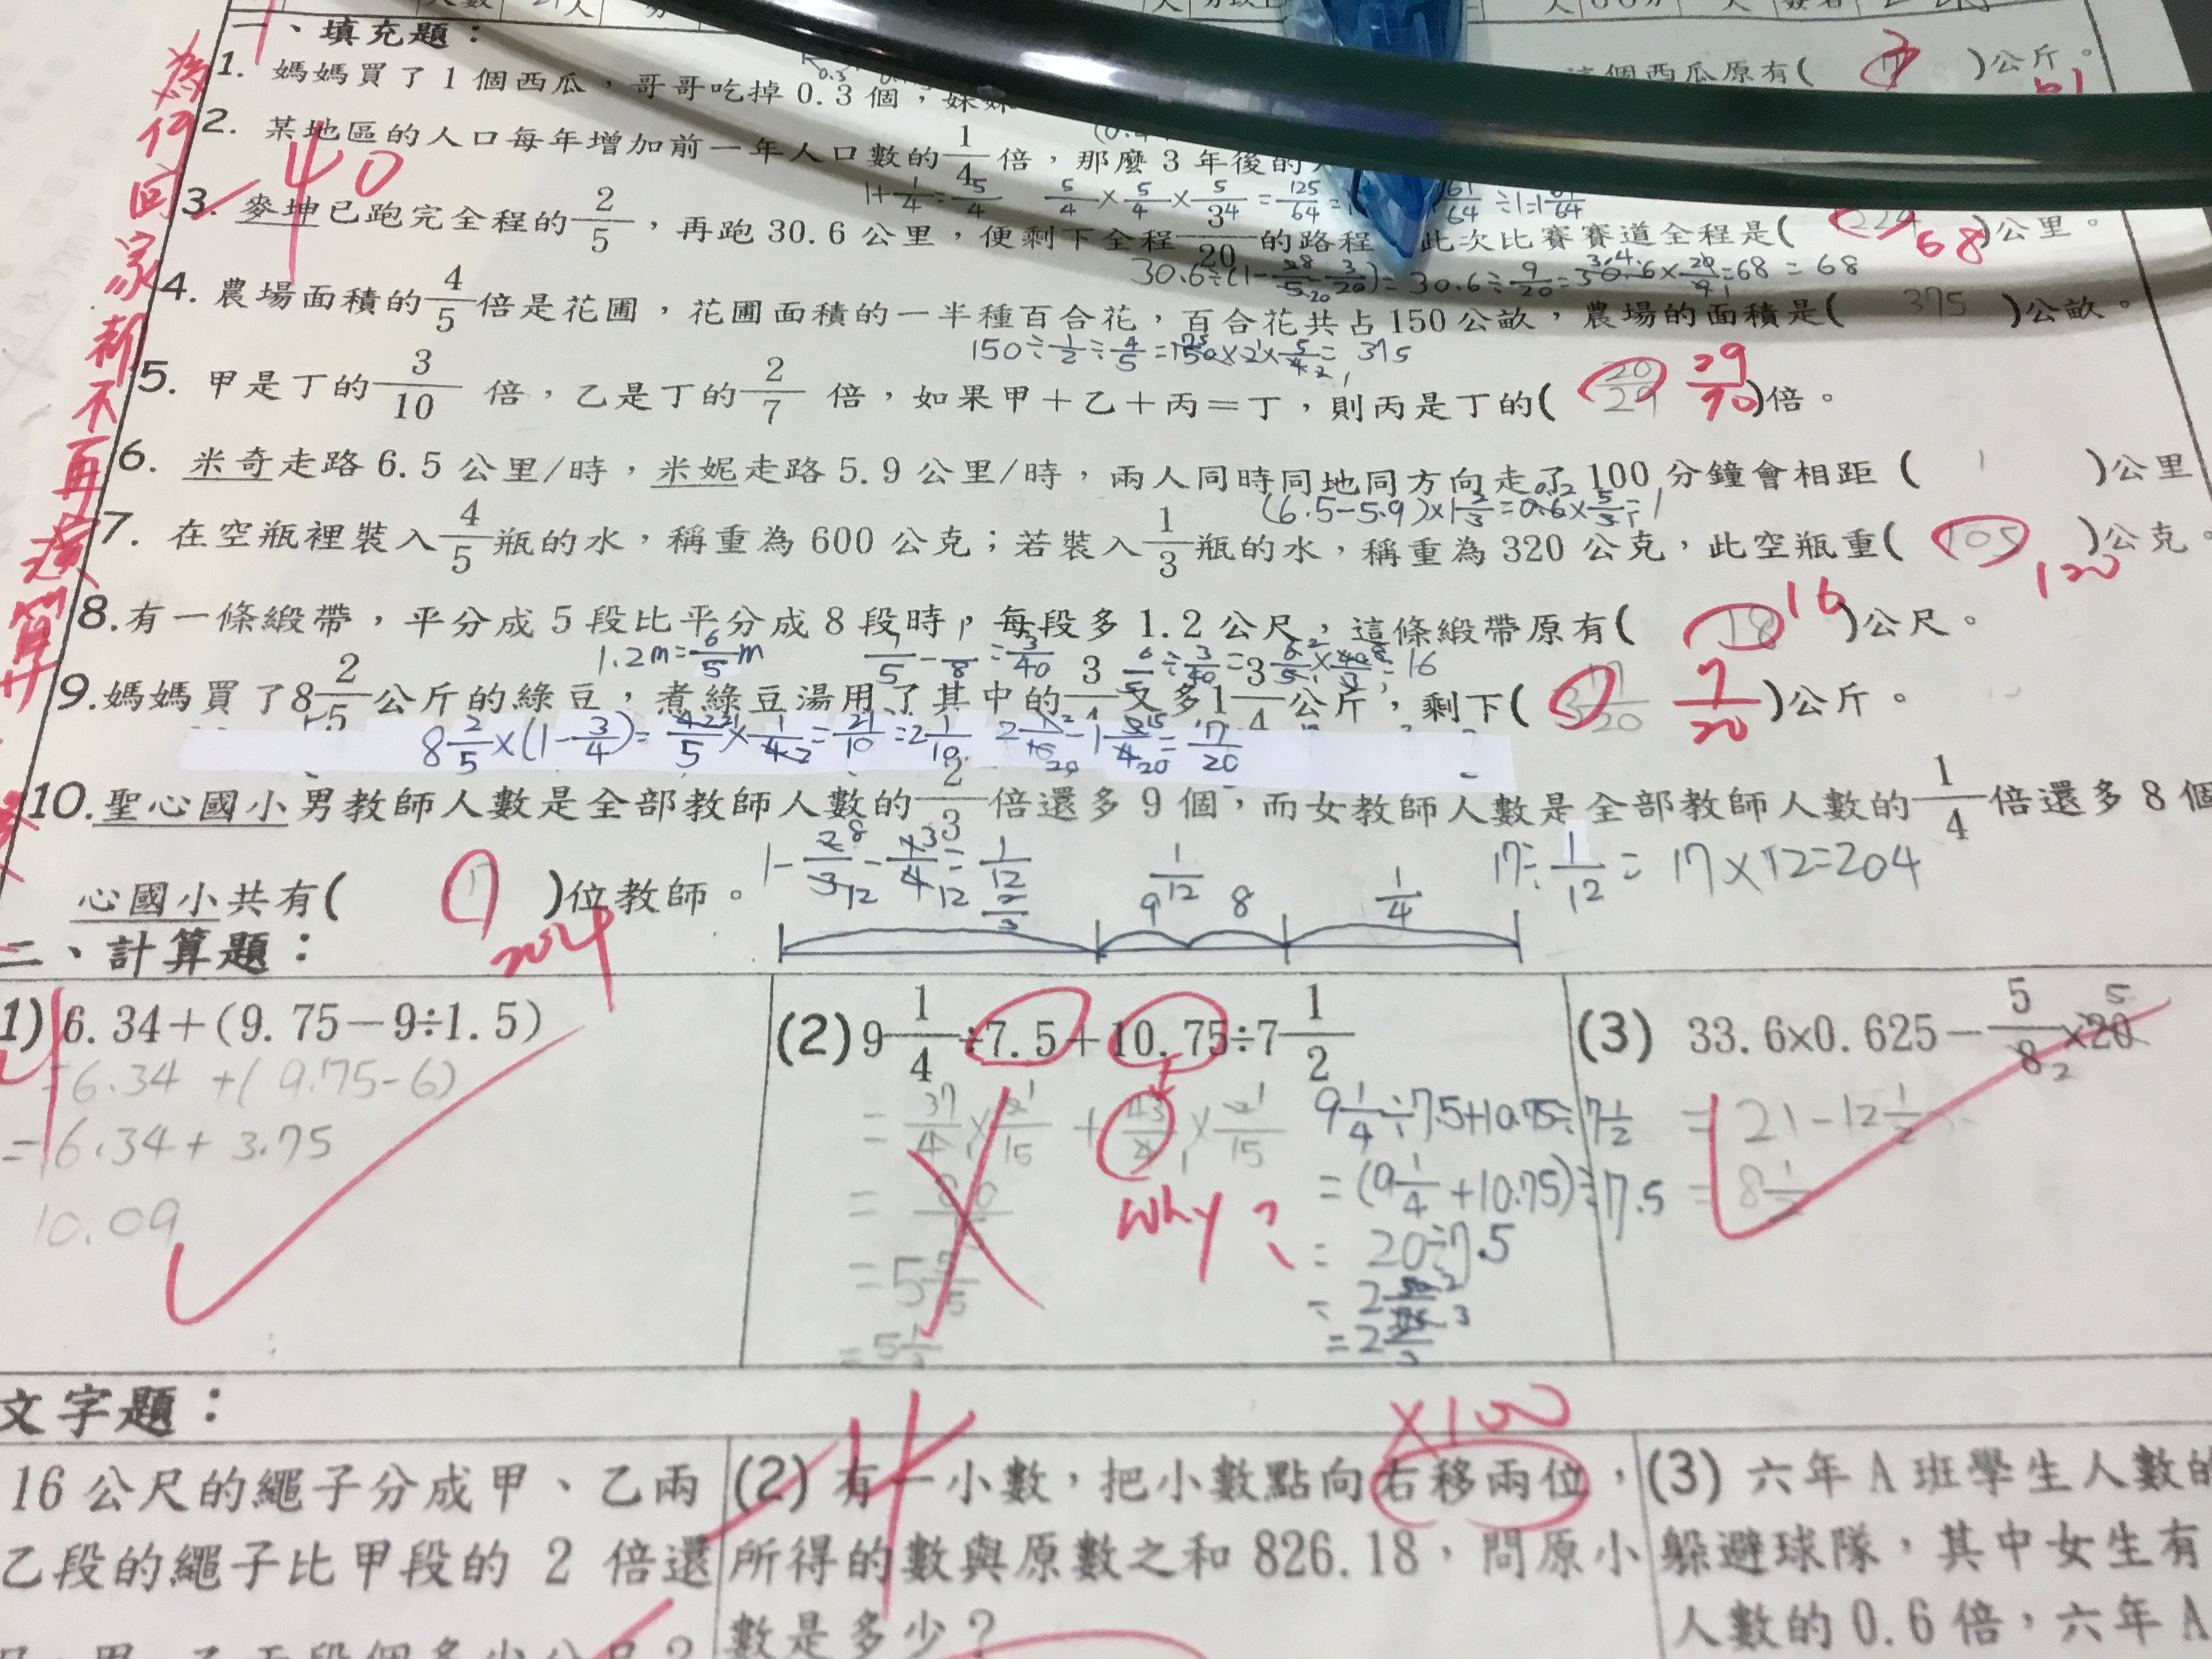 一、填充題：
1. 媽媽買了1個西瓜，哥哥吃掉0.3個，妹妹 這個西瓜原有( )公斤。
2. 某地區的人口每年增加前一年人口數的1/4倍，那麼3年後的
1+1/4=5/4 5/4×5/4×5/4=125/64
40
3. 麥坤已跑完全程的2/5，再跑30.6公里，便剩下全程3/20的路程 此次比賽賽道全程是( )公里。
68
30.6÷(1-2/5-3/20)=30.6÷9/20=30.6×20/9=68 = 68
4. 農場面積的4/5倍是花圃，花圃面積的一半種百合花，百合花共占150公畝，農場的面積是( 375 )公畝。
150÷1/2÷4/5=150×2×5/4= 375
5. 甲是丁的3/10 倍，乙是丁的2/7 倍，如果甲＋乙＋丙＝丁，則丙是丁的( 20/29 29/70 )倍。
6. 米奇走路6.5公里/時，米妮走路5.9公里/時，兩人同時同地同方向走了100分鐘會相距( 1 )公里
(6.5-5.9)×1 2/3=0.6×5/3=1
7. 在空瓶裡裝入4/5瓶的水，稱重為600公克；若裝入1/3瓶的水，稱重為320公克，此空瓶重( 105 )公克。
120
8.有一條緞帶，平分成5段比平分成8段時，每段多1.2公尺，這條緞帶原有( 18 16 )公尺。
1.2m=6/5m 1/5-1/8=3/40 6/5÷3/40=6/5×40/3=16
9.媽媽買了8 2/5公斤的綠豆，煮綠豆湯用了其中的3/4又多1 3/4公斤，剩下( )公斤。
8 2/5×(1-3/4)=42/5×1/4=21/10=2 1/10
10.聖心國小男教師人數是全部教師人數的2/3倍還多9個，而女教師人數是全部教師人數的1/4倍還多8個
1-2/3-1/4=1/12
17÷1/12= 17×12=204
心國小共有( 17 )位教師。
204
2/3 9 1/12 8 1/4
為何回家都不再演算
二、計算題：
1) 6.34＋(9.75－9÷1.5)
=6.34 +(9.75-6)
=6.34+3.75
10.09
(2) 9 1/4÷7.5＋10.75÷7 1/2
= 37/4×2/15 + 43/4×2/15
why?
9 1/4÷7.5+10.75÷7 1/2
=(9 1/4+10.75)÷7.5
= 20÷7.5
=2 2/3
(3) 33.6×0.625－5/8×20
= 21-12 1/2
= 8 1/2
文字題：
×100
16公尺的繩子分成甲、乙兩
乙段的繩子比甲段的 2 倍還
(2) 有一小數，把小數點向右移兩位，
所得的數與原數之和826.18，問原小
數是多少？
(3) 六年A班學生人數的
躲避球隊，其中女生有
人數的0.6倍，六年A